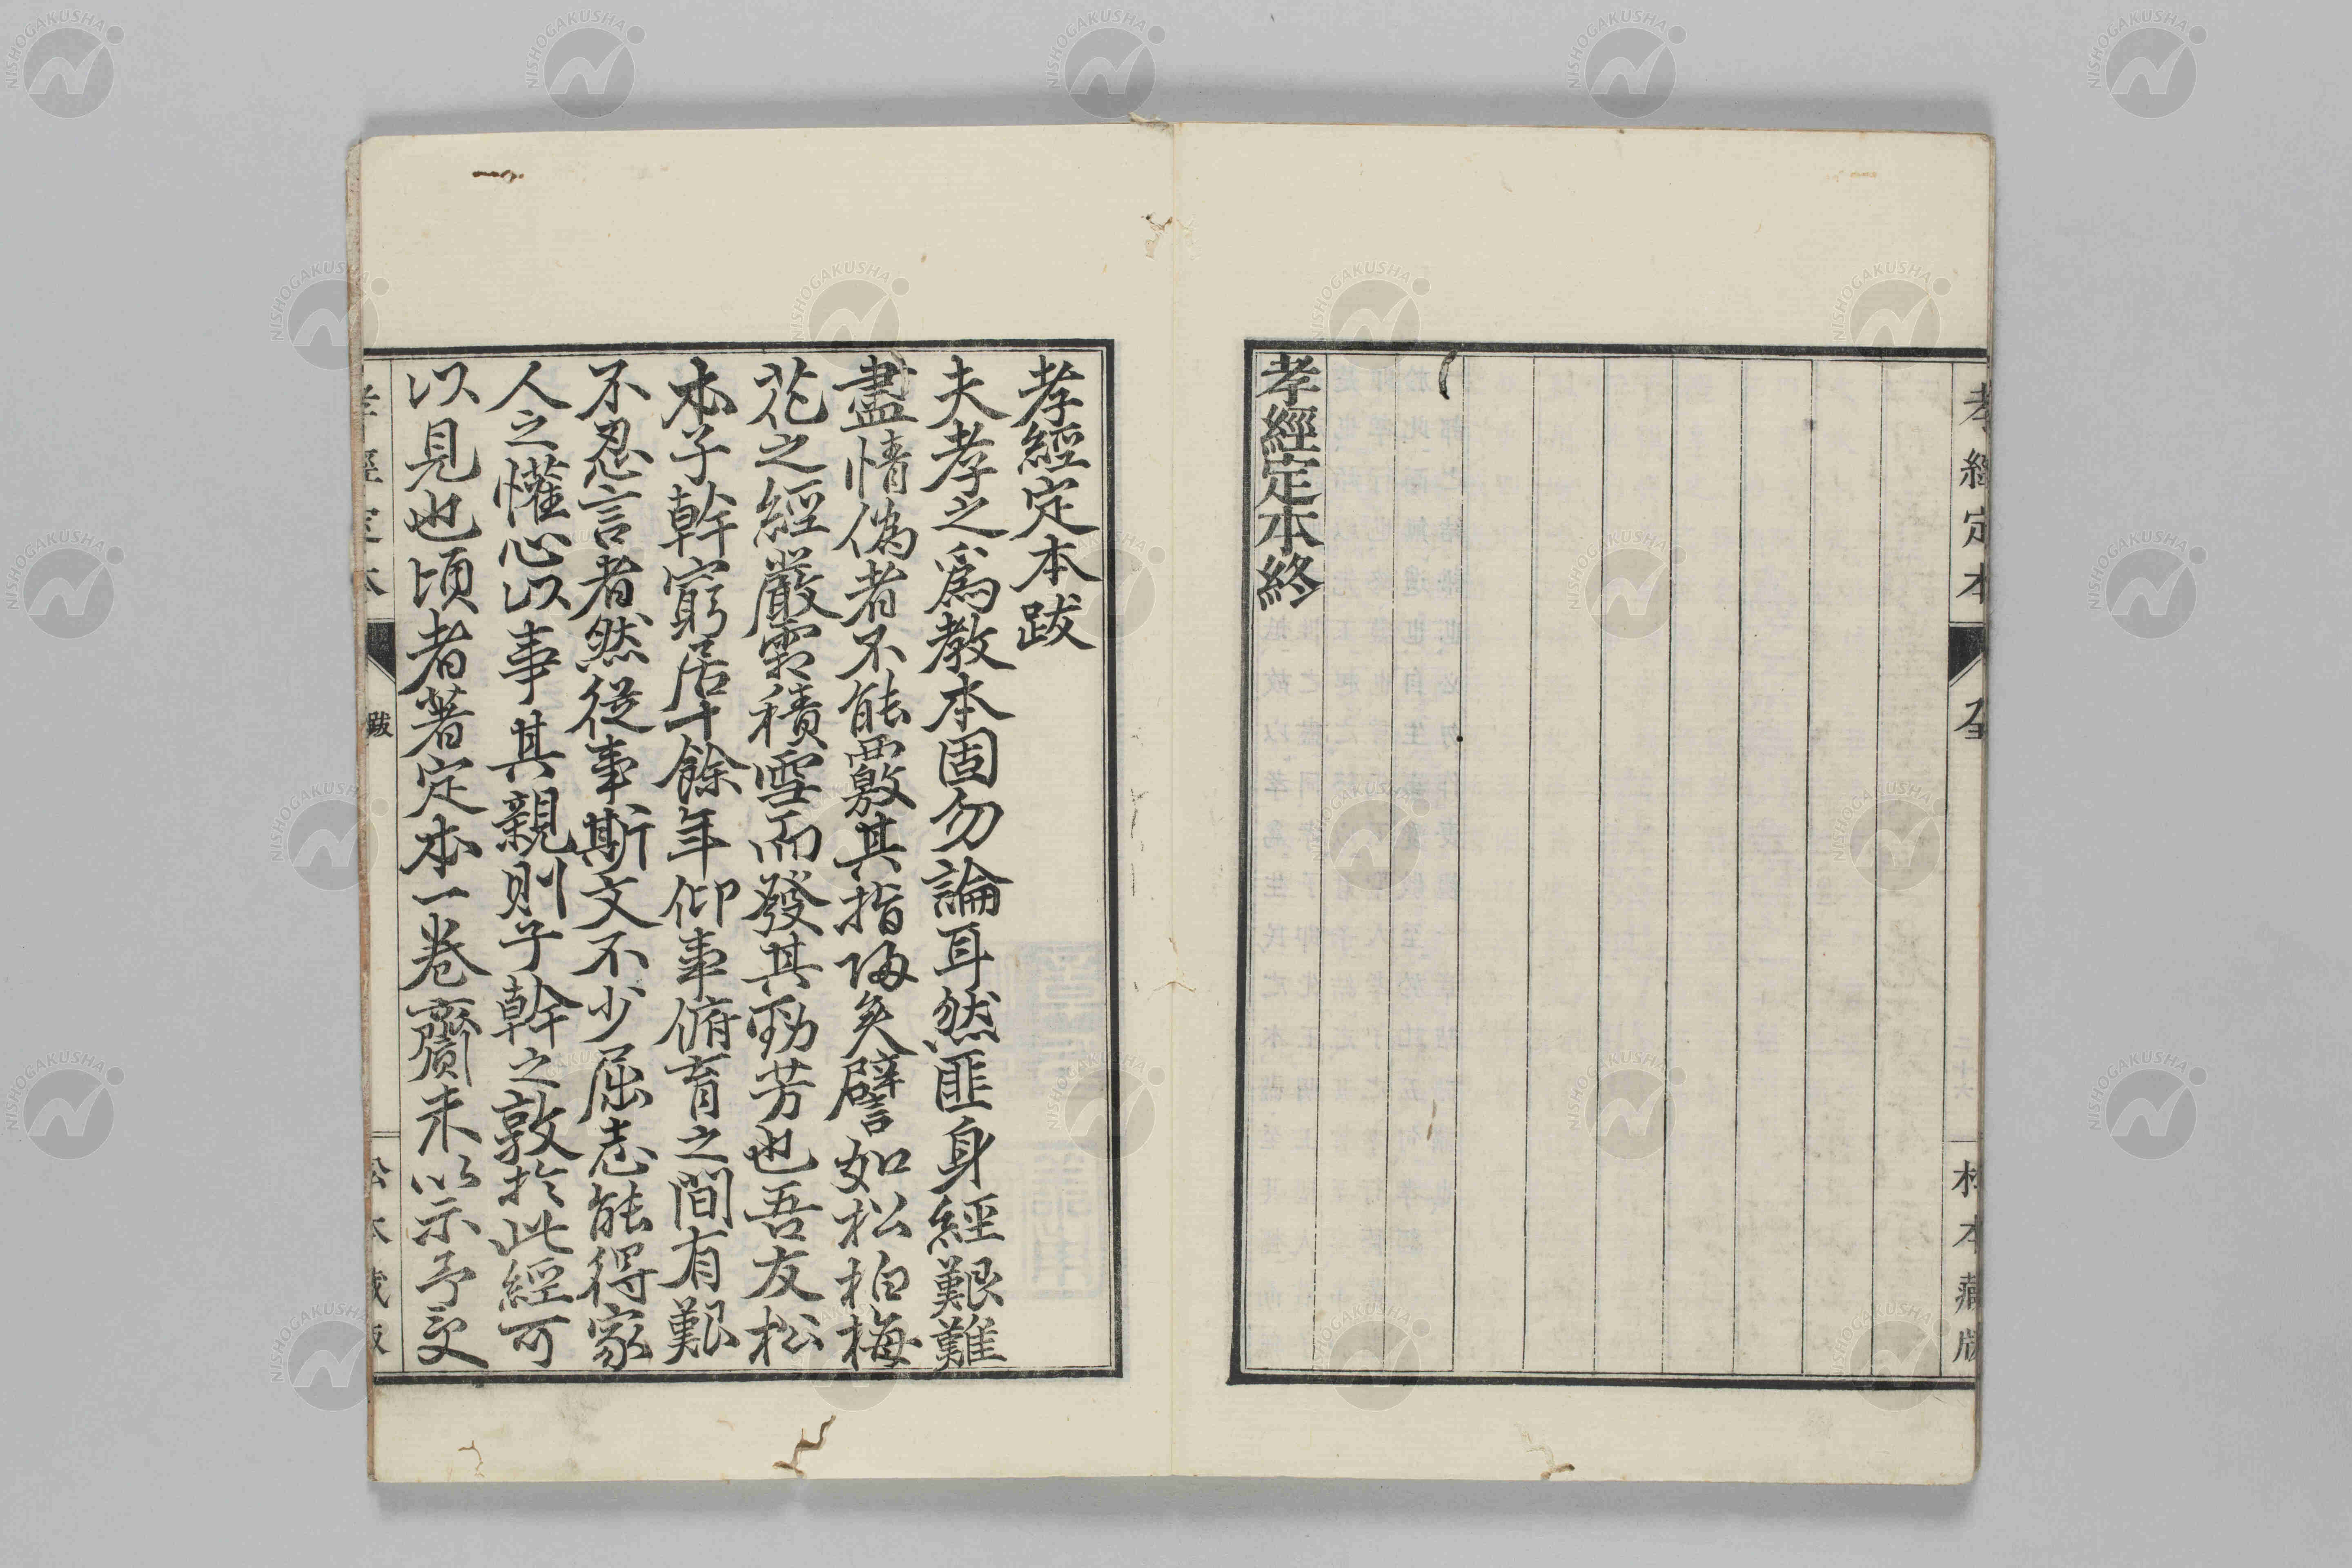 孝經定本
全
松本藏版
孝經定本終
孝經定本跋
夫孝之爲教本固勿論耳然匪身經艱難
盡情偽者不能覈其指歸矣譬如松柏梅
花之經嚴霜積雪而發其勁芳也吾友松
本子幹窮居十餘年仰事俯育之間有艱
不忍言者然從事斯文不少屈志能得家
人之懽心以事其親則子幹之敦於此經可
以見也頃者著定本一卷齎来以示予受
孝經定本
跋
松本藏版
NISHOGAKUSHA